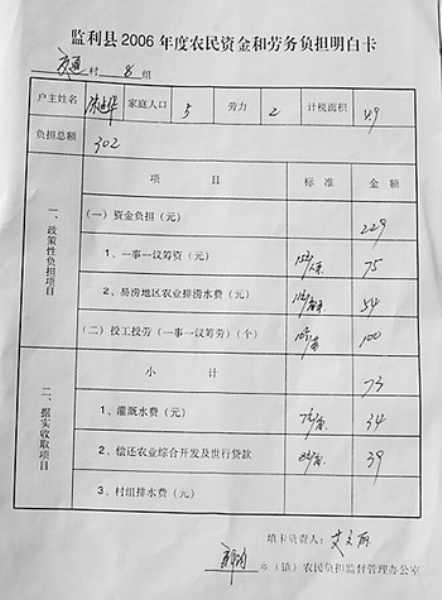 监利县2006年度农民资金和劳务负担明白卡
村 8 组
户主姓名 家庭人口 5 劳力 2 计税面积 4.9
负担总额 302
项 目 标 准 金 额
一、政策性负担项目
(一)资金负担(元) 229
1、一事一议筹资(元) 75
2、易涝地区农业排涝水费(元) 54
(二)投工投劳(一事一议筹劳)(个) 100
二、据实收取项目
小 计 73
1、灌溉水费(元) 34
2、偿还农业综合开发及世行贷款 39
3、村组排水费(元)
填卡负责人:艾文丽
乡(镇)农民负担监督管理办公室